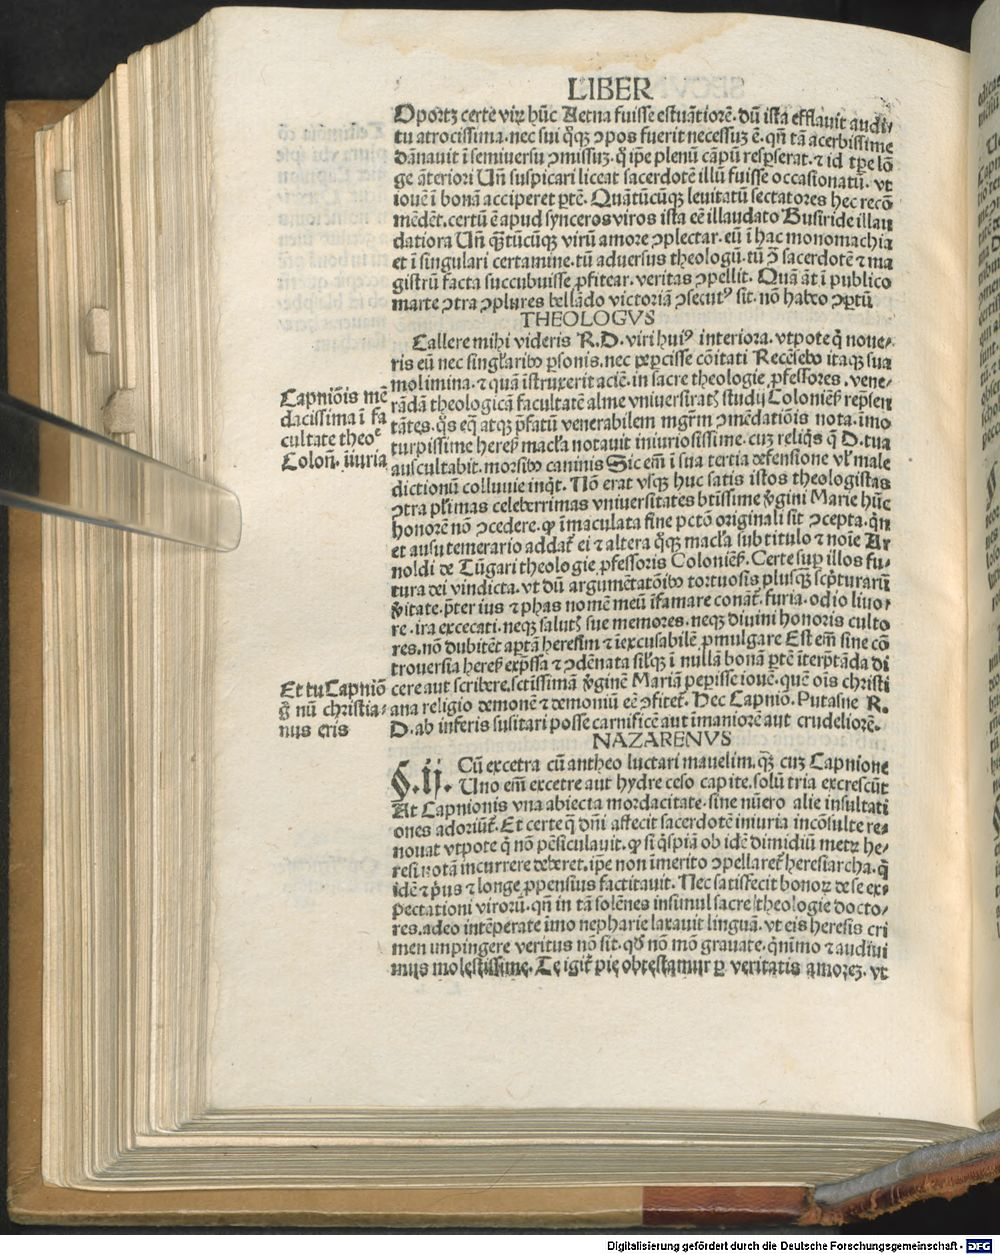 LIBER
Oportꝫ certe virꝝ hūc Aetna fuisse estuātiorē. dū ista efflauit audi⸗
tu atrocissima. nec sui q̊qꝫ ↄpos fuerit necessuꝫ ē. qn̄ tā acerbissime
dānauit ī semiuersu ↄmissuꝫ. ꝙ ip̄e plenū cāpū resꝑserat. ⁊ id tꝑe lō
ge āteriori Un̄ suspicari liceat sacerdotē illū fuisse occasionatū. vt
iouē ī bonā acciperet ꝑtē. Quātūcūqꝫ leuitatū sectatores hec recō
mēdēt. certū ē apud synceros viros ista eē illaudato Busiride illau
datiora Un̄ qn̄tūcūqꝫ virū amore ↄplectar. eū ī hac monomachia
et ī singulari certamine. tū aduersus theologū. tū ↄ̄ sacerdotē ⁊ ma
gistrū facta succubuisse ꝓfitear. veritas ↄpellit. Quā āt ī publico
marte ↄtra ↄplures bellādo victoriā ↄsecutꝰ sit. nō habeo ↄꝑtū
THEOLOGVS
Callere mihi videris R. D. viri huiꝰ interiora. vtpote q̇ noue⸗
ris eū nec singl̄aribꝰ ꝑsonis. nec peꝑcisse cōitati Recēsebo itaqꝫ sua
molimina. ⁊ quā īstruxerit aciē. in sacre theologie ꝓfessores. vene⸗
rādā theologicā facultatē alme vniuersitatꝭ studij Colonieñ. rep̄sen
tātes. q̊s eq̄ atqꝫ p̄fatū venerabilem mgr̄m ↄmēdatiōis nota. īmo
turpissime heresꝭ macl̄a notauit iniuriosissime. cuꝫ reliq̇s q̄ D. tua
auscultabit. morsibꝰ caninis Sic em̄ ī sua tertia defensione vl̓ male
dictionū colluuie inqt̓. Nō erat vsqꝫ huc satis istos theologistas
ↄtra pl̓imas celeberrimas vniuersitates btīssime v̓gini Marie hūc
honorē nō ↄcedere. ꝙ īmaculata sine pctō originali sit ↄcepta. q̇n
et ausu temerario addat̓ ei ⁊ altera q̊qꝫ macl̄a sub titulo ⁊ noīe Ar
noldi de Tūgari theologie ꝓfessoris Colonieñ. Certe suꝑ illos fu⸗
tura dei vindicta. vt dū argumētatōibꝰ tortuosis plusqꝫ scp̄turarū
v̓itate. p̄ter ius ⁊ phas nomē meū īfamare conāt̓. furia. odio liuo⸗
re. ira excecati. neqꝫ salutꝭ sue memores. neqꝫ diuini honoris culto
res. nō dubitēt aptā heresim ⁊ iexcusabilē ꝓmulgare Est em̄ sine cō
trouersia heresꝭ exp̄ssa ⁊ ↄdēnata sil̓qꝫ ī nullā bonā ꝑtē īterp̄tāda di
cere aut scribere. sctīssimā v̓ginē Mariā peꝑisse iouē. quē oīs christi
ana religio demonē ⁊ demoniū eē ↄfitet̓. Hec Capnio. Putasne R.
D. ab inferis susitari posse carnificē aut īmaniorē aut crudeliorē.
Capniōis mē
dacissima ī fa
cultate theoᵉ
Coloñ. iiuria
Et tu Capniō
g̊ nū christia⸗
nus eris
NAZARENVS
§. ij. Cū excetra cū antheo luctari mauelim. qꝫ cuꝫ Capnione
Uno em̄ excetre aut hydre ceso capite. solū tria excrescūt
At Capnionis vna abiecta mordacitate. sine nūero alie insultati
ones adoriūt̓. Et certe q̄ dn̄i affecit sacerdotē iniuria incōsulte re⸗
nouat vtpote q̇ nō pēsiculauit. ꝙ si q̇spiā ob idē dimidiū metꝝ he⸗
resi notā incurrere deberet. ip̄e non īmerito ↄpellaret̓ heresiarcha. q̇
idē ⁊ p̓us ⁊ longe ꝓpensius factitauit. Nec satisfecit bonoꝝ de se ex⸗
pectationi virorū. qn̄ in tā solēnes insimul sacre theologie docto⸗
res. adeo intēperate īmo nepharie laxauit linguā. vt eis heresis cri
men impingere veritus nō sit. qd̓ nō mō grauate. q̇nīmo ⁊ audiui
mus molestissime. Te igit̓ pie obtestamur ꝑ veritatis amoreꝫ. vt